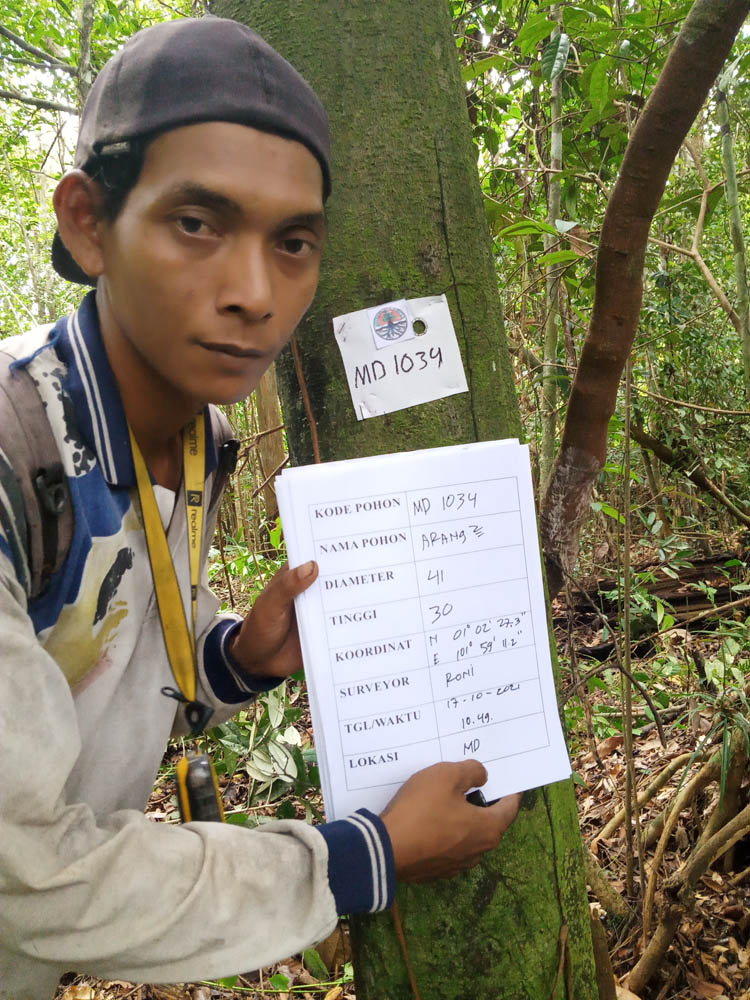 MD 1034
realme
realme
KODE POHON MD 1034
NAMA POHON ARANG2
DIAMETER 41
TINGGI 30
KOORDINAT N 01° 02' 27.3"
E 101° 59' 11.2"
SURVEYOR RONI
TGL/WAKTU 17-10-2021
10.49.
LOKASI MD